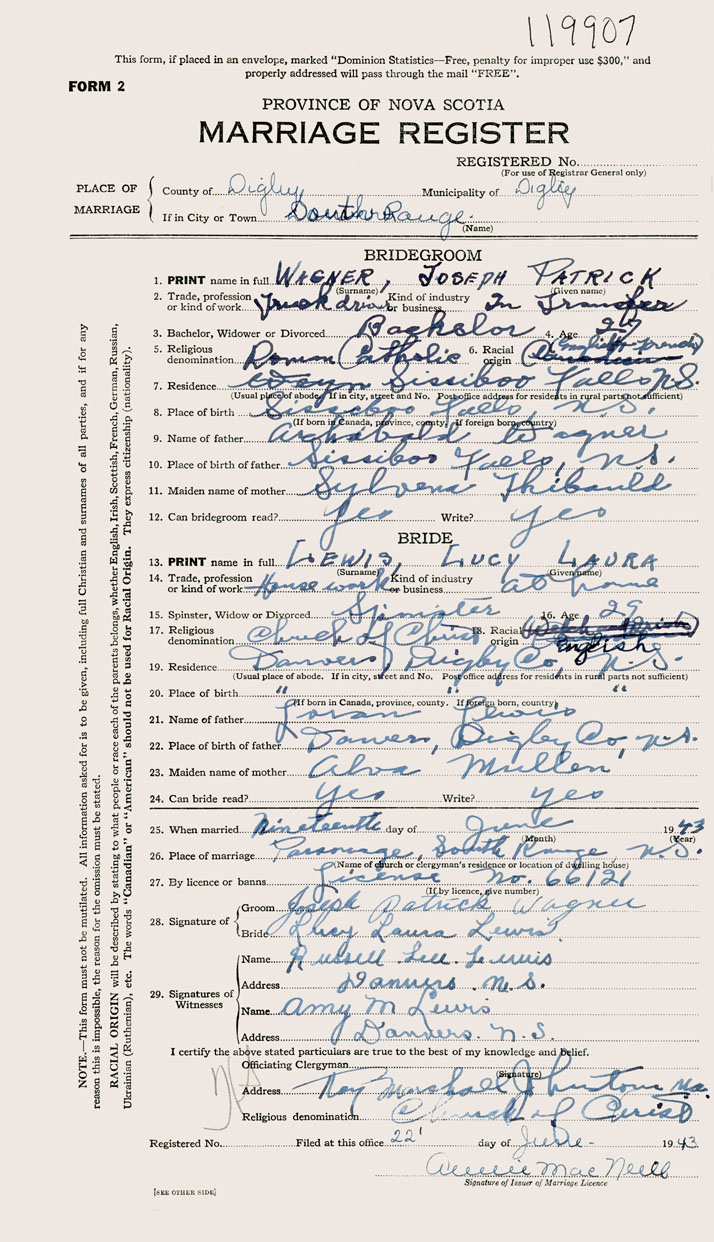 119907
This form, if placed in an envelope, marked "Dominion Statistics—Free, penalty for improper use $300," and
properly addressed will pass through the mail "FREE".
FORM 2
PROVINCE OF NOVA SCOTIA
MARRIAGE REGISTER
REGISTERED No.
(For use of Registrar General only)
PLACE OF MARRIAGE
County of Digby Municipality of Digby
If in City or Town South Range
(Name)
BRIDEGROOM
1. PRINT name in full WAGNER, JOSEPH PATRICK
(Surname) (Given name)
2. Trade, profession or kind of work Truck driver Kind of industry or business In Transfer
3. Bachelor, Widower or Divorced Bachelor 4. Age
5. Religious denomination Roman Catholic 6. Racial origin (English-French)
7. Residence Sissiboo Falls N.S.
(Usual place of abode. If in city, street and No. Post office address for residents in rural parts not sufficient)
8. Place of birth Sissiboo Falls, N.S.
(If born in Canada, province, county. If foreign born, country)
9. Name of father Archibald Wagner
10. Place of birth of father Sissiboo Falls, N.S.
11. Maiden name of mother Sylvena Thibauld
12. Can bridegroom read? Yes Write? yes
BRIDE
13. PRINT name in full LEWIS, LUCY LAURA
(Surname) (Given name)
14. Trade, profession or kind of work House work Kind of industry or business at home
15. Spinster, Widow or Divorced Spinster 16. Age 29
17. Religious denomination Church of Christ 18. Racial origin English
19. Residence Danvers, Digby Co., N.S.
(Usual place of abode. If in city, street and No. Post office address for residents in rural parts not sufficient)
20. Place of birth " " "
(If born in Canada, province, county. If foreign born, country)
21. Name of father Loran Lewis
22. Place of birth of father Danvers, Digby Co., N.S.
23. Maiden name of mother Alva Mullen
24. Can bride read? Yes Write? yes
25. When married Nineteenth day of June 1943
(Month) (Year)
26. Place of marriage Parsonage, South Range N.S.
(Name of church or clergyman's residence or location of dwelling house)
27. By licence or banns License No. 66121
(If by licence, give number)
28. Signature of
Groom Joseph Patrick Wagner
Bride Lucy Laura Lewis
29. Signatures of Witnesses
Name Russell Lee Lewis
Address Danvers. N.S.
Name Amy M Lewis
Address Danvers. N.S.
I certify the above stated particulars are true to the best of my knowledge and belief.
Officiating Clergyman
(Signature)
Address Roy Marshall
Religious denomination Church of Christ
Registered No. Filed at this office 22' day of June - 1943
Annie MacNeill
Signature of Issuer of Marriage Licence
[SEE OTHER SIDE]
NOTE.—This form must not be mutilated. All information asked for is to be given, including full Christian and surnames of all parties, and if for any
reason this is impossible, the reason for the omission must be stated.
RACIAL ORIGIN will be described by stating to what people or race each of the parents belongs, whether English, Irish, Scottish, French, German, Russian,
Ukrainian (Ruthenian), etc. The words "Canadian" or "American" should not be used for Racial Origin. They express citizenship (nationality).